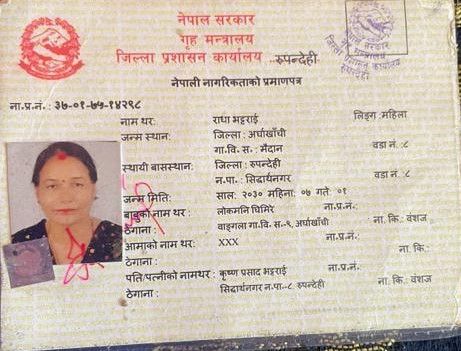 नेपाल सरकार
गृह मन्त्रालय
जिल्ला प्रशासन कार्यालय रुपन्देही
नेपाली नागरिकताको प्रमाणपत्र
ना.प्र.नं. : ३७-०१-७५-१४२९८
नाम थर: राधा भट्टराई लिङ्ग: महिला
जन्म स्थान: जिल्ला : अर्घाखाँची
गा.वि.स. : मैदान वडा नं. :८
स्थायी बासस्थान: जिल्ला : रुपन्देही
न.पा. : सिद्धार्थनगर वडा नं. :८
जन्म मिति: साल: २०३० महिना: ०७ गते: ०१
बाबुको नाम थर : लोकमनि घिमिरे ना.प्र.नं.:
ठेगाना : वाङ्गला गा.वि.स.-९, अर्घाखाँची ना. कि.: वंशज
आमाको नाम थर : XXX ना.प्र.नं.:
ठेगाना : ना. कि.:
पति/पत्नीको नामथर : कृष्ण प्रसाद भट्टराई ना.प्र.नं.:
ठेगाना : सिद्धार्थनगर न.पा.-८, रुपन्देही ना. कि.: वंशज
नेपाल सरकार